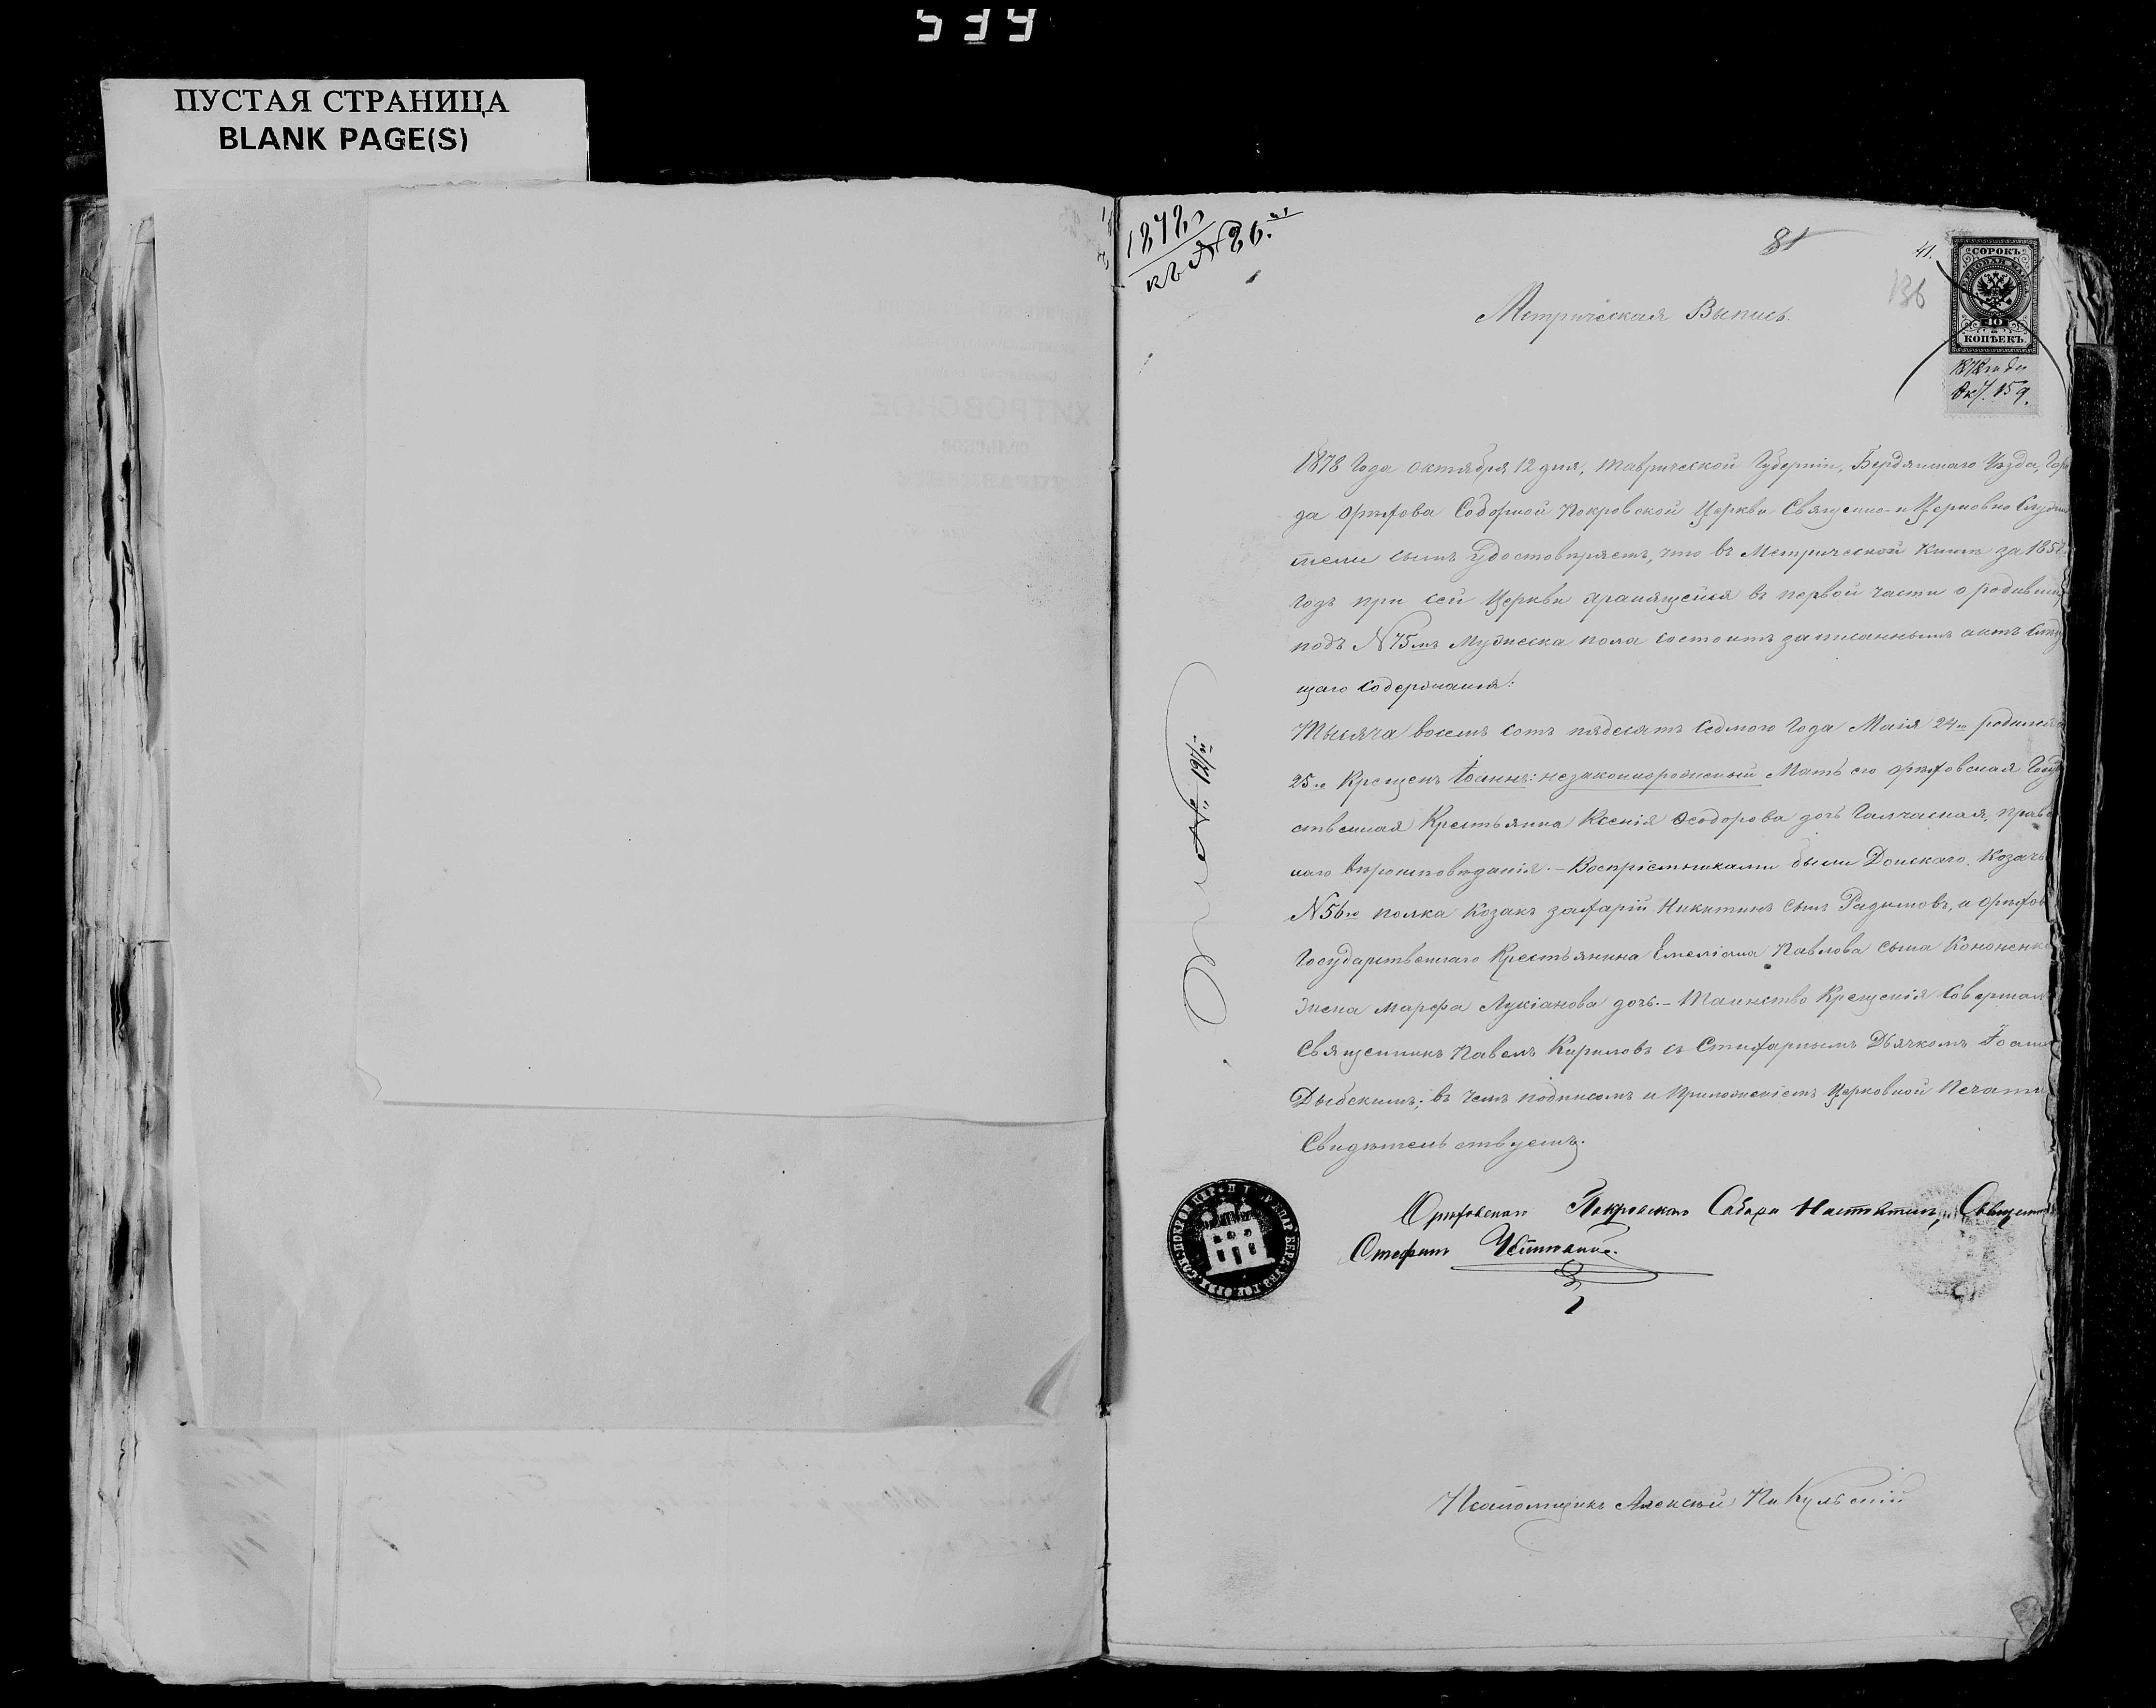 534
ПУСТАЯ СТРАНИЦА
BLANK PAGE(S)
ХИТРОВСКОЕ
1878
къ № 26.
81
41.
136
СОРОКЪ
40
КОПѢЕКЪ.
1878 года
Окт. 15 д.
Метрическая Выпись.
1878 Года Октября 12 дня, Таврической Губерніи, Бердянскаго Уѣзда, Горо
да Орѣхова Соборной Покровской Церкви Священно-и Церковно Служи
тели симъ Удостовѣряетъ, что въ Метрической Книгѣ за 1857
годъ при сей Церкви хранящейся въ первой части о родивших
подъ № 75мъ Мужеска пола состоитъ записаннымъ актъ Слѣду
щаго Содержанія:
Тысяча восемъ сотъ пядесятъ Седмого Года Маія 24го родился
25го Крещенъ Іоаннъ: незаконнорожденный Мать его Орѣховская Госуд
ственная Крестьянка Ксенія Ѳеодорова дочь Галчаская, право
наго вѣроисповѣданія. – Воспріемниками были Донскаго Козачь
№ 56го полка Козакъ Захарій Никитинъ Сынъ Радимовъ, и Орѣхов
Государственнаго Крестьянина Емеліана Павлова Сына Кононенк
Жена Марфа Лукіанова дочь. – Таинство Крещенія Совершалъ
Священникъ Павелъ Кириловъ съ Стихарнымъ Дьячкомъ Іоанн
Дыбскимъ; въ чемъ подписомъ и Приложеніемъ Церковной Печати
Свидѣтельствуемъ.
№ 12/
Орѣховскаго Покровскаго Собора Настоятель, Священник
Стефанъ
Псаломщикъ Алексѣй Пи Кульскій